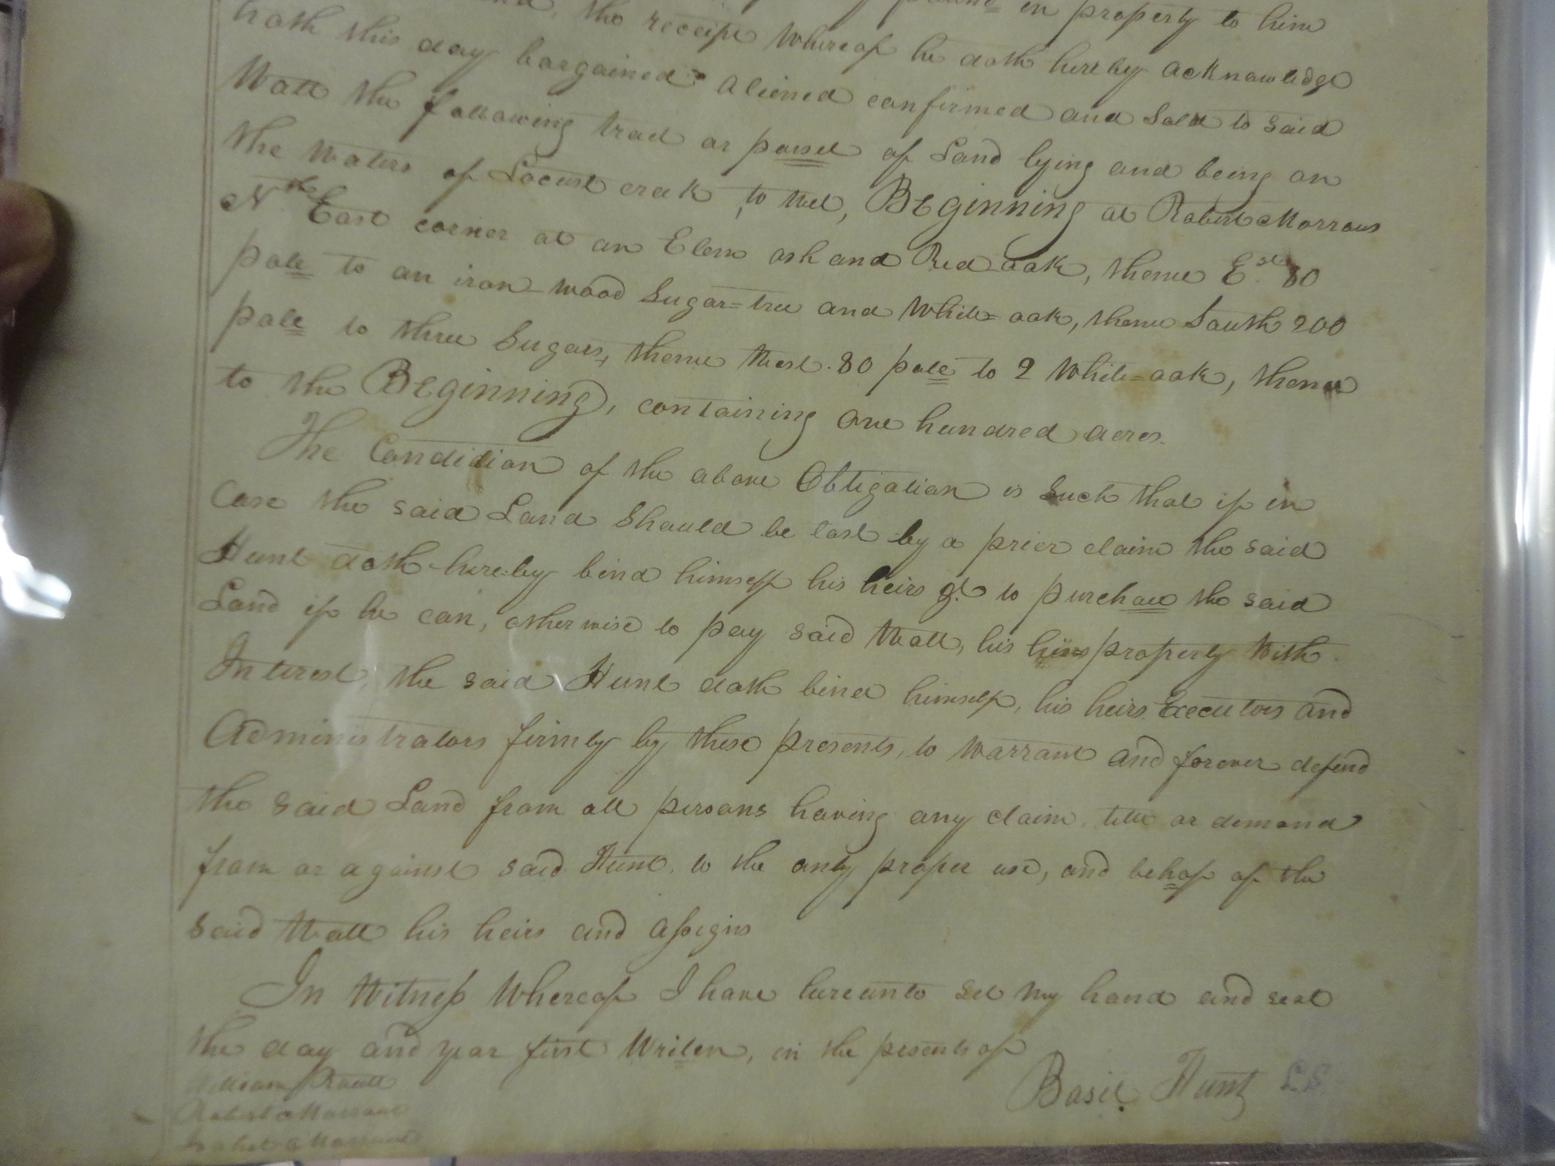 in property to him
the receipt Whereof he doth hereby acknowledge
hath this day bargained aliened confirmed and Sold to said
Watt the following tract or parsel of Land lying and being on
the Waters of Locust creek, to wit, Beginning at Robert Morrows
Nth East corner at an Elem ash and Red oak, thence Est 80
pole to an iron-wood Sugar=tree and White=oak, thence South 200
pole to three Sugars, thence West 80 pole to 2 White=oak, thence
to the Beginning, containing one hundred acres.
The Condidion of the above Obligation is Such that if in
Case the said Land Should be lost by a prier claim the said
Hunt doth hereby bind himself his heirs &c to purchase the said
Land if he can, otherwise to pay said Watt, his heirs property With
Interest, the said Hunt doth bind himself, his heirs Executors and
Administrators firmly by these presents, to Warrant and forever defend
the said Land from all persons having any claim title or demand
from or against said Hunt, to the only proper use, and behof of the
said Watt his heirs and assigns
In Witness Whereof I have hereunto Set my hand and seal
the day and year first Writen, in the presents of
Basil Hunt LS
William
Robert Morrow
Morrow